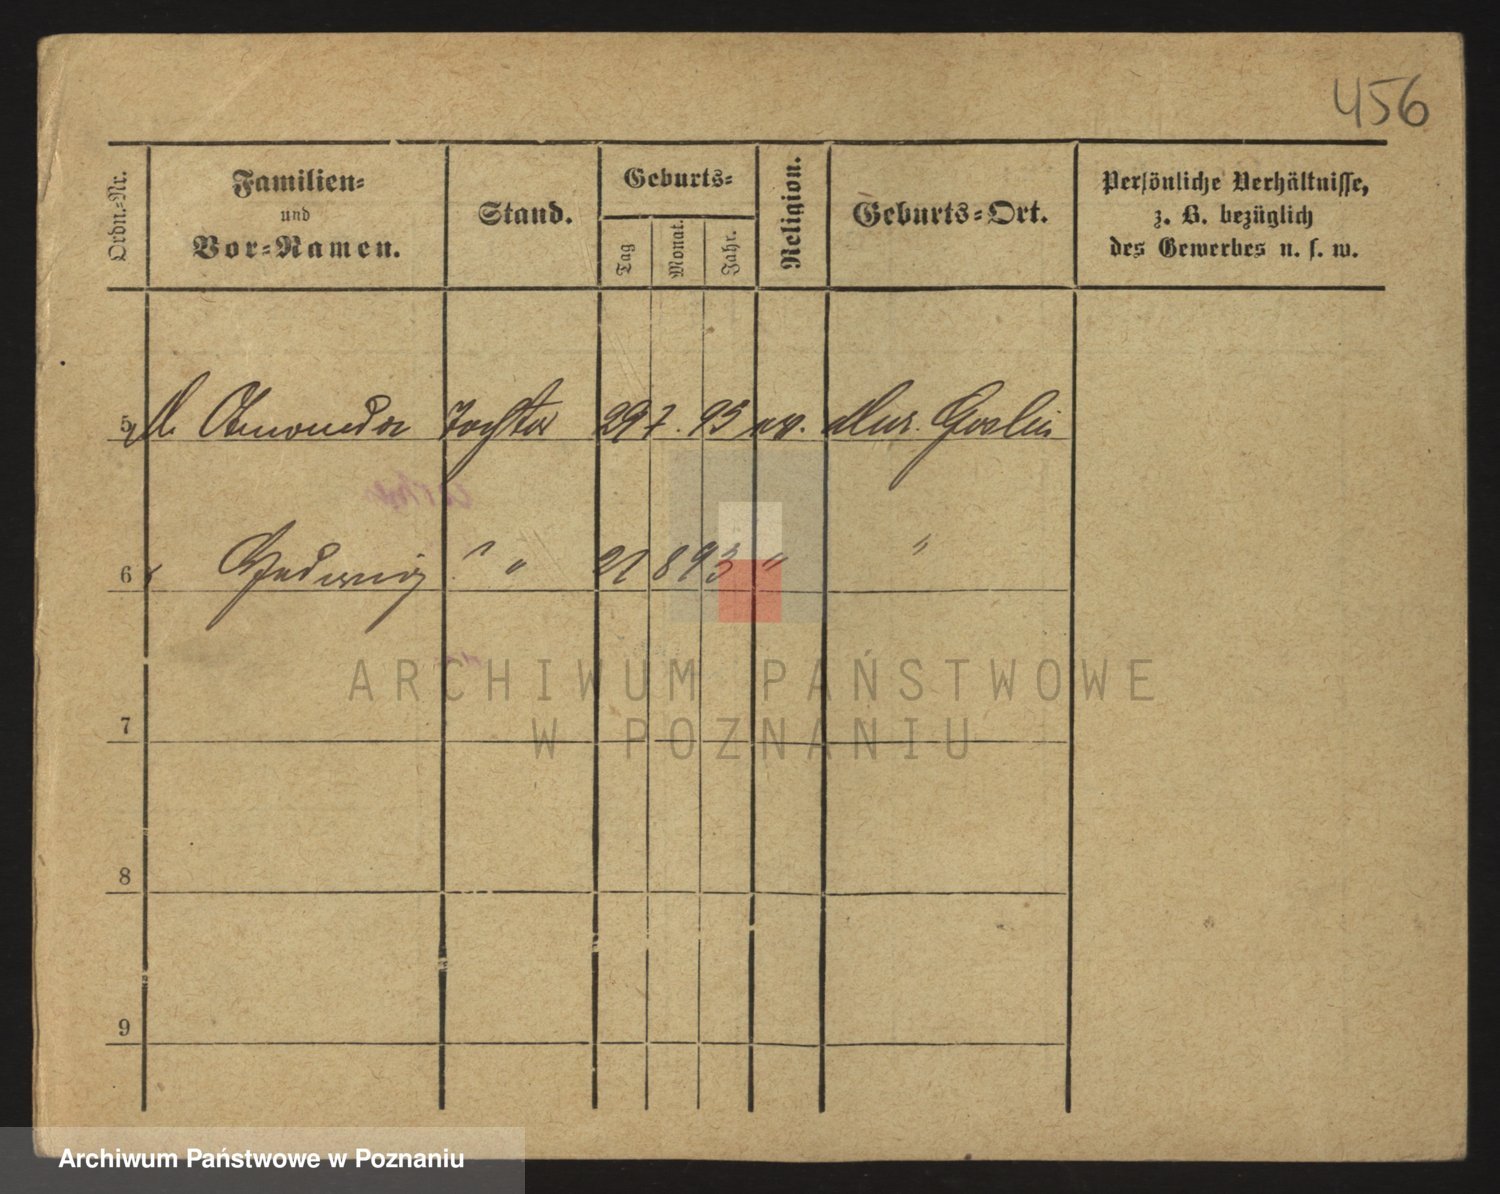 456
Ordn.-Nr.
Familien-
und
Vor-Namen.
Stand.
Geburts-
Tag
Monat.
Jahr.
Religion.
Geburts-Ort.
Persönliche Verhältnisse,
z. B. bezüglich
des Gewerbes u. s. w.
5 Tochter 29 7. 93 ev. Mur. Goslin
6 Hedwig " " 21 8 93 " "
ARCHIWUM PAŃSTWOWE
W POZNANIU
7
8
9
Archiwum Państwowe w Poznaniu